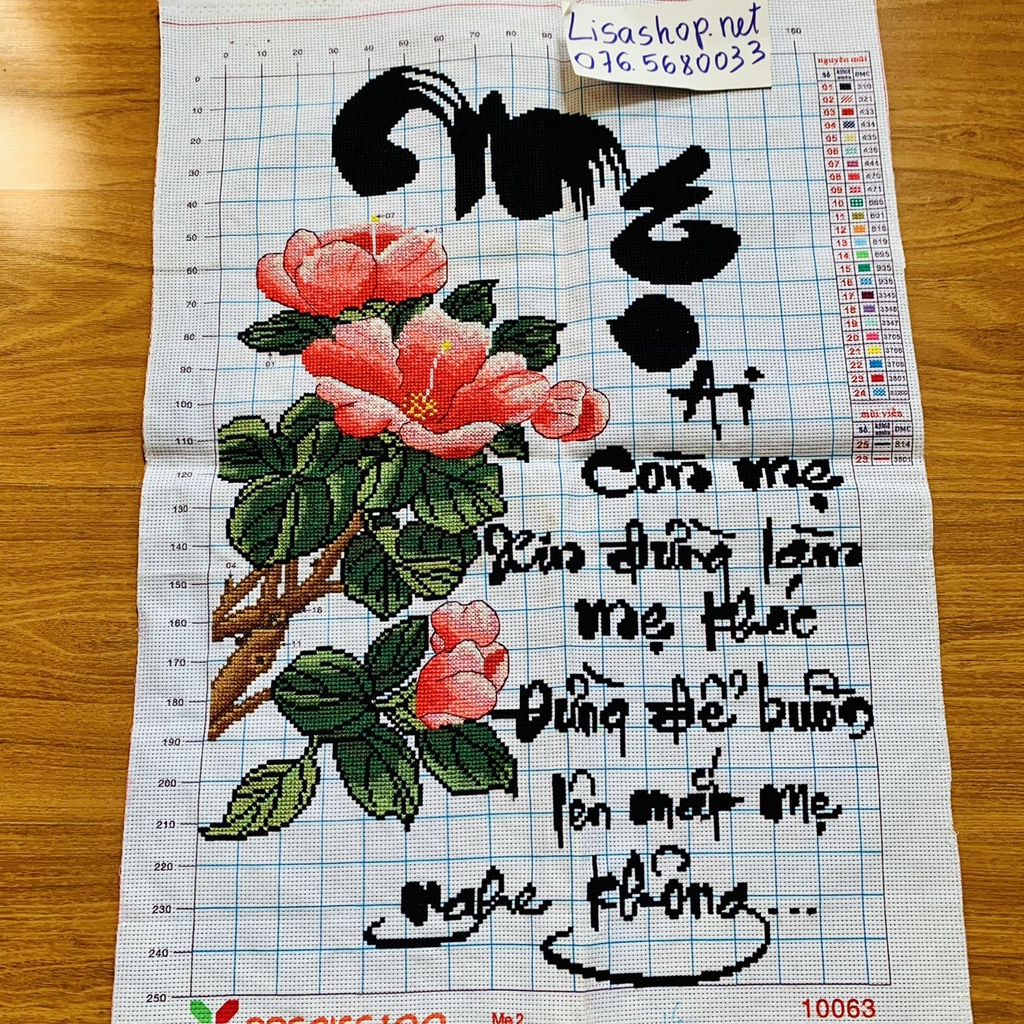 Lisashop.net
076.5680033
0 10 20 30 40 50 60 70 80 90 160
0
10
20
30
40
50
60
70
80
90
100
110
120
130
140
150
160
170
180
190
200
210
220
230
240
250
nguyên mũi
Số KÍHIỆU DMC
01 310
02 321
03 433
04 434
05 435
06 436
07 444
08 470
09 471
10 666
11 891
12 818
13 819
14 895
15 935
16 936
17 3345
18 3346
19 3347
20 3705
21 3706
22 3708
23 3801
24
mũi viền
Số DMC
25 814
23 3801
07
01
04
16
11
Mẹ
Ai
Còn mẹ
Xin đừng làm
mẹ khóc
Đừng để buồn
lên mắt mẹ
nghe không...
Me 2
10063